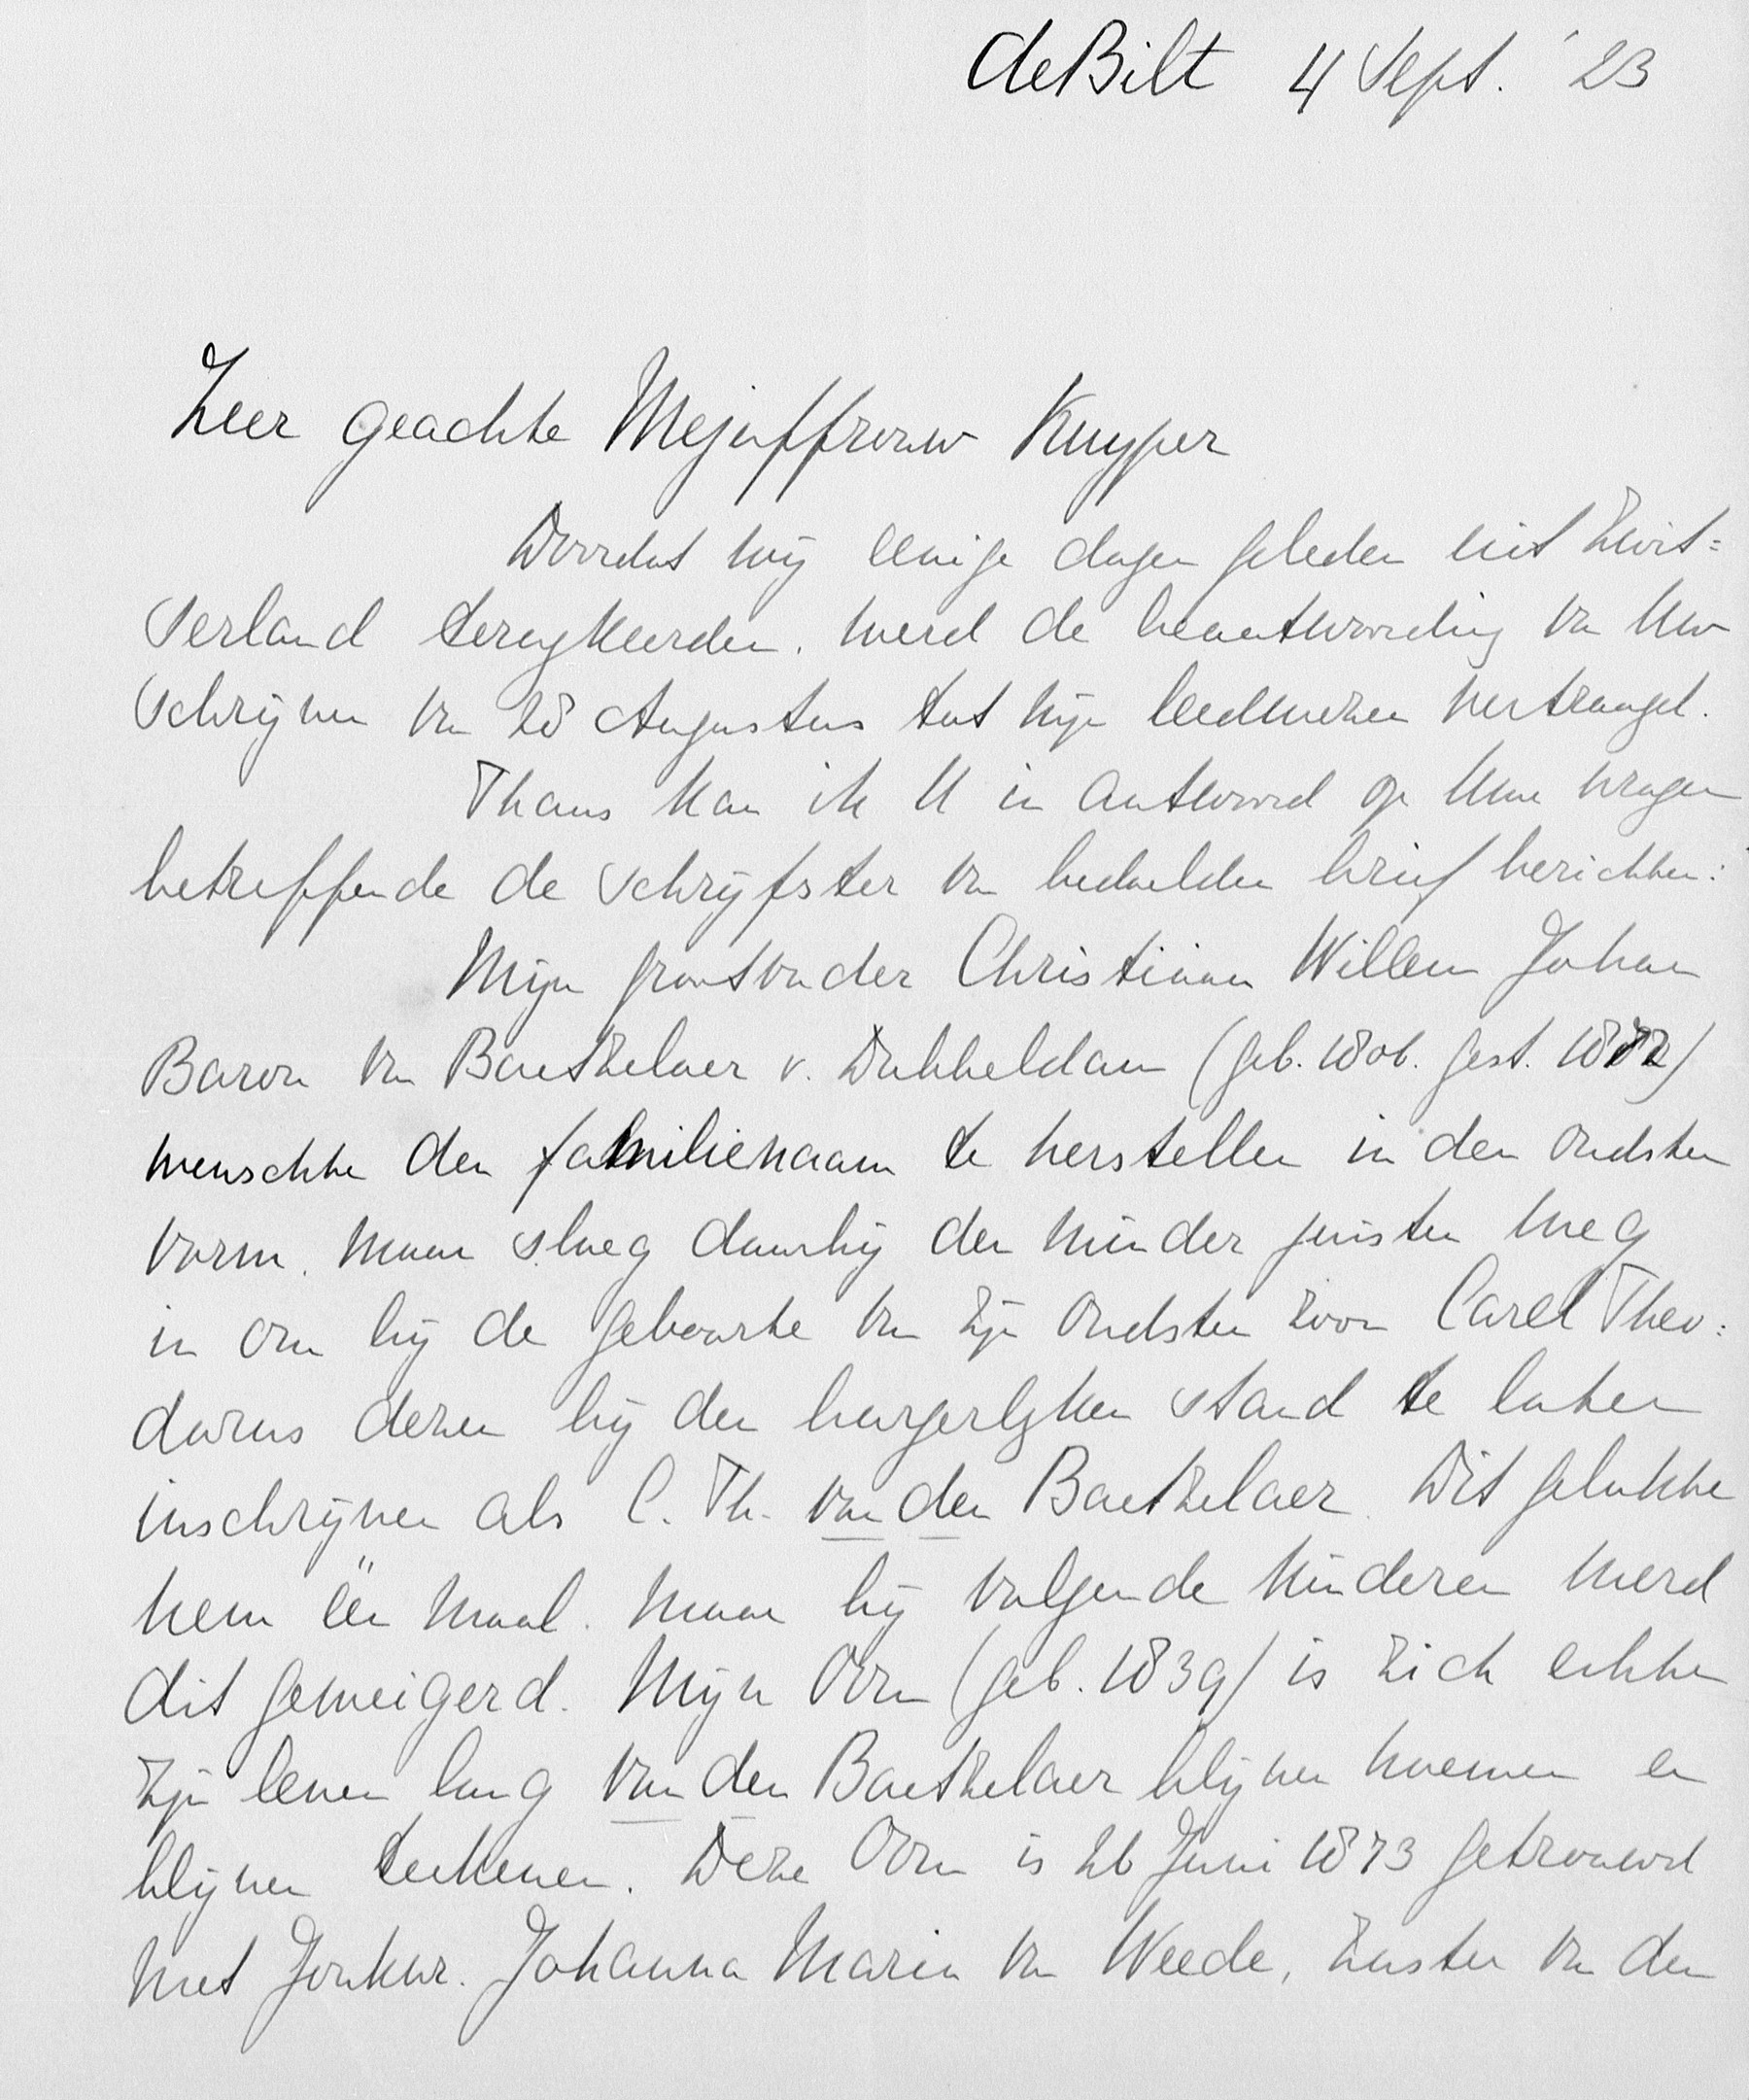 de Bilt 4 Sept. '23
Zeer geachte Mejuffrouw Kuyper
Doordat wij eenige dagen geleden uit Zwit=
serland terugkeerden, werd de beantwoording van Uw
schrijven van 28 Augustus tot mijn leedwezen vertraagd.
Thans kan ik U in antwoord op Uwe vragen
betreffende de schrijfster van bedoelden brief berichten:
Mijn grootvader Christiaan Willem Johan
Baron van Boetzelaer v. Dubbeldam (geb. 1806. gest. 1872)
wenschte den familienaam te herstellen in den oudsten
vorm, maar sloeg daarbij den minder juisten weg
in om bij de geboorte van zijn oudsten zoon Carel Theo=
dorus dezen bij den burgerlijken stand te laten
inschrijven als C. Th. van den Boetzelaer. Dit gelukte
hem één maal, maar bij volgende kinderen werd
dit geweigerd. Mijn Oom (geb. 1839) is zich echter
zijn leven lang van den Boetzelaer blijven noemen en
blijven teekenen. Deze Oom is 26 Juni 1873 getrouwd
met Jonkvr. Johanna Maria van Weede, zuster van den